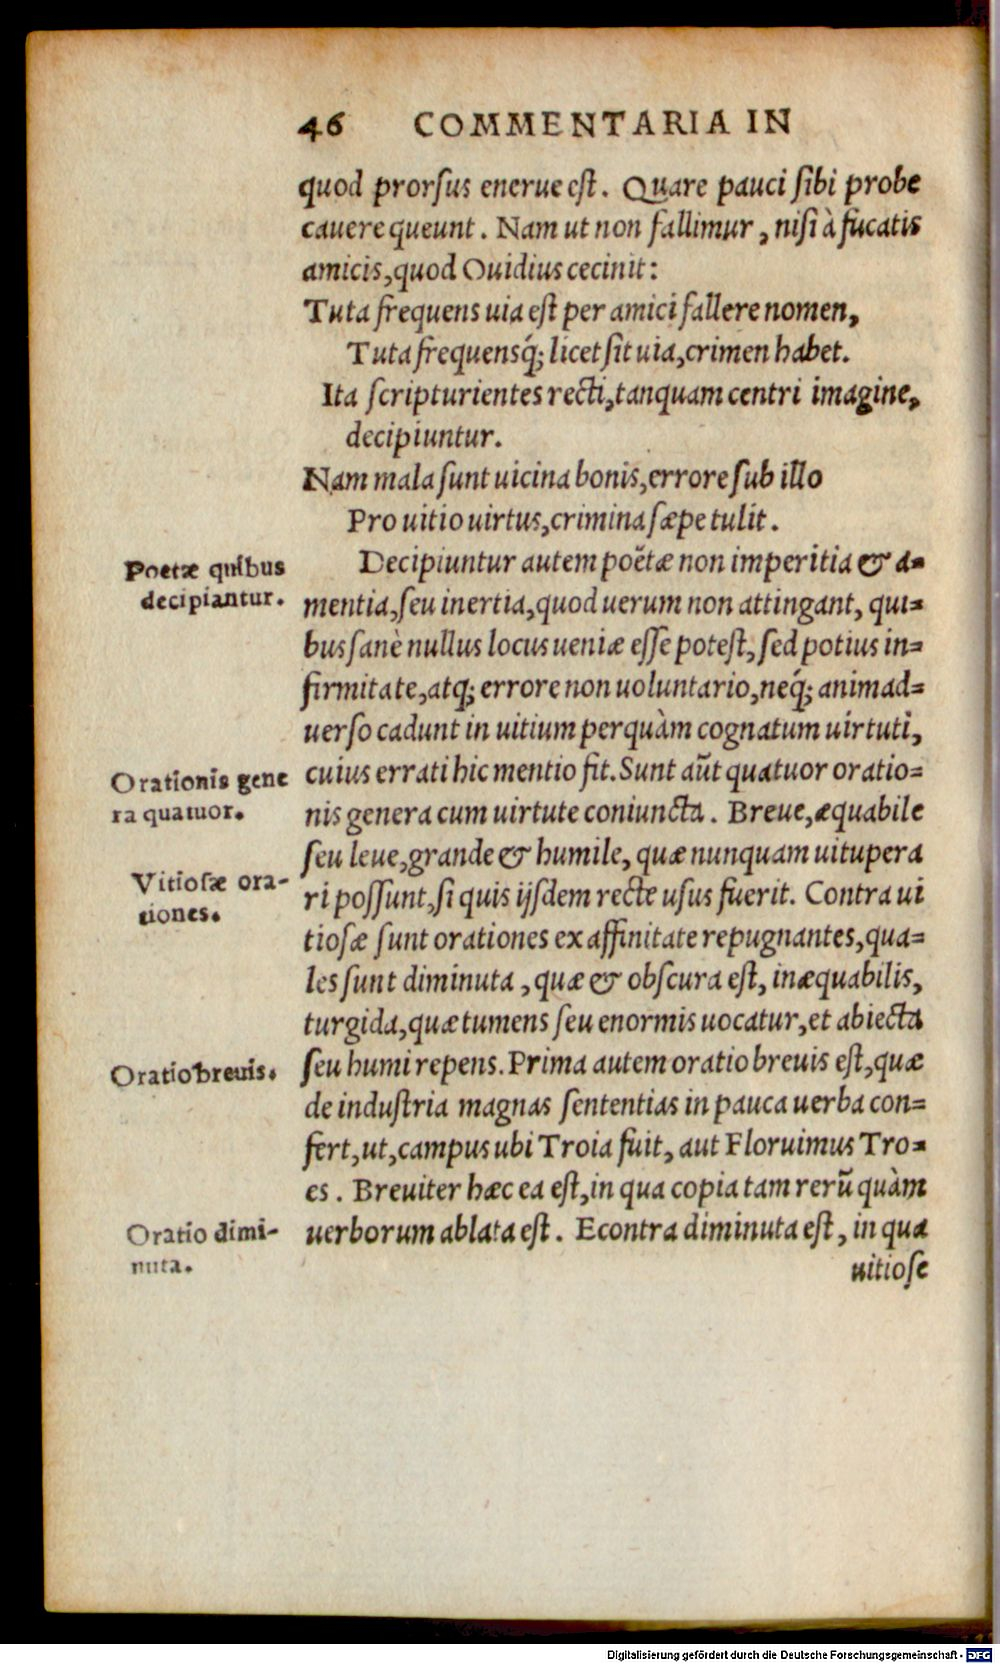 46 COMMENTARIA IN
quod prorsus enerue est. Quare pauci sibi probe
cauere queunt. Nam ut non fallimur, nisi à fucatis
amicis, quod Ouidius cecinit:
Tuta frequens uia est per amici fallere nomen,
Tuta frequensq́; licet sit uia, crimen habet.
Ita scripturientes recti, tanquam centri imagine,
decipiuntur.
Nam mala sunt uicina bonis, errore sub illo
Pro uitio uirtus, crimina sæpe tulit.
Poetæ quibus
decipiantur.
Decipiuntur autem poëtæ non imperitia & a=
mentia, seu inertia, quod uerum non attingant, qui=
bus sanè nullus locus ueniæ esse potest, sed potius in=
firmitate, atq; errore non uoluntario, neq́; animad=
uerso cadunt in uitium perquàm cognatum uirtuti,
Orationis gene
ra quatuor.
cuius errati hic mentio fit. Sunt aūt quatuor oratio=
nis genera cum uirtute coniuncta. Breue, æquabile
seu leue, grande & humile, quæ nunquam uitupera
Vitiosæ ora-
tiones.
ri possunt, si quis ijsdem recte usus fuerit. Contra ui
tiosæ sunt orationes ex affinitate repugnantes, qua=
les sunt diminuta, quæ & obscura est, inæquabilis,
turgida, quæ tumens seu enormis uocatur, et abiecta
Oratio breuis.
seu humi repens. Prima autem oratio breuis est, quæ
de industria magnas sententias in pauca uerba con=
fert, ut, campus ubi Troia fuit, aut Floruimus Tro=
es. Breuiter hæc ea est, in qua copia tam rerū quàm
Oratio dimi-
nuta.
uerborum ablata est. Econtra diminuta est, in qua
uitiose
Digitalisierung gefördert durch die Deutsche Forschungsgemeinschaft - DFG